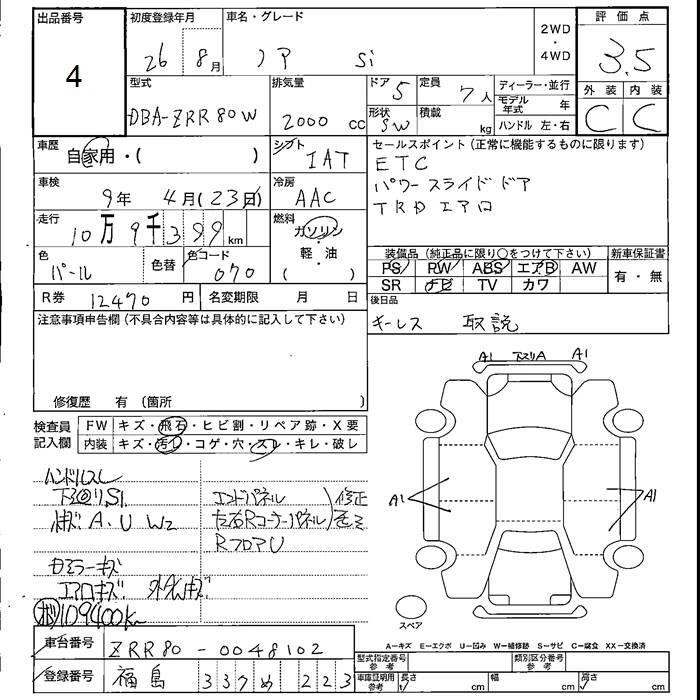 出品番号
4
初度登録年月
26 8月
車名・グレード
ノア Si
2WD
・
4WD
評価点
3.5
外装 内装
C C
型式
DBA-ZRR80W
排気量
2000 cc
ドア 5
形状 SW
定員 7人
積載 kg
ディーラー・並行
モデル年式 年
ハンドル 左・右
車歴
自家用・( )
シフト
IAT
セールスポイント(正常に機能するものに限ります)
ETC
パワースライドドア
TRD エアロ
車検
9年 4月(23日)
冷房
AAC
走行
10万9千399 km
燃料
ガソリン
・
軽・油
( )
色
パール
色替
色コード
070
装備品(純正品に限り○をつけて下さい)
PS PW ABS エアB AW
SR ナビ TV カワ
新車保証書
有・無
R券 12470 円
名変期限 月 日
後日品
キーレス 取説
注意事項申告欄(不具合内容等は具体的に記入して下さい)
修復歴 有(箇所 )
検査員記入欄
FW キズ・飛石・ヒビ割・リペア跡・X要
内装 キズ・汚れ・コゲ・穴・スレ・キレ・破レ
ハンドルスレ
エンドパネル
左右Rコーナーパネル
修正
RフロアU
A.U W2
ドアミラーキズ
エアロキズ
109400km
A1 下スリA A1
A1
A1
スペア
A-キズ E-エクボ U-凹み W-補修跡 S-サビ C-腐食 XX-交換済
車台番号
ZRR80-0048102
登録番号
福島 337 め 223
型式指定番号 参考
類別区分番号 参考
車庫証明用 参考
長さ cm
幅 cm
高さ cm